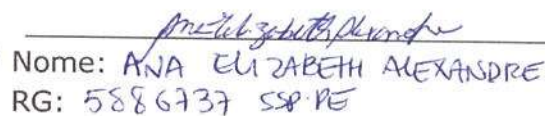 Ana Elizabeth Alexandre
Nome: ANA ELIZABETH ALEXANDRE
RG: 5886737 SSP-PE